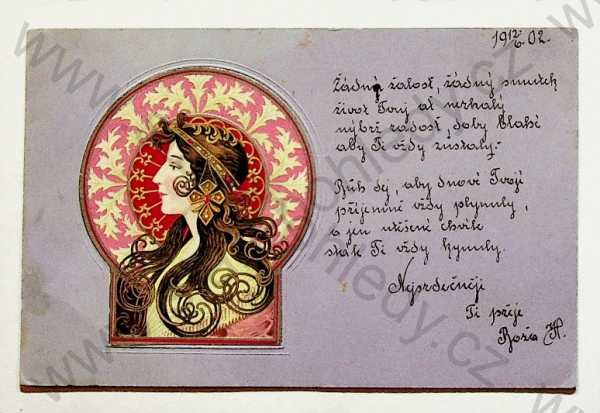 19 12/6 02.
Žádná žalosť, žádný smutek
život Tvůj ať nezkalý
nýbrž radosť, doby blahé
aby Ti vždy zůstaly.
Bůh dej, aby dnové Tvoji
příjemně vždy plynuly,
a jen utěšené chvíle
Ti vždy kynuly.
Nejsrdečněji
Ti přeje
Róža H.
www.pohledy.cz